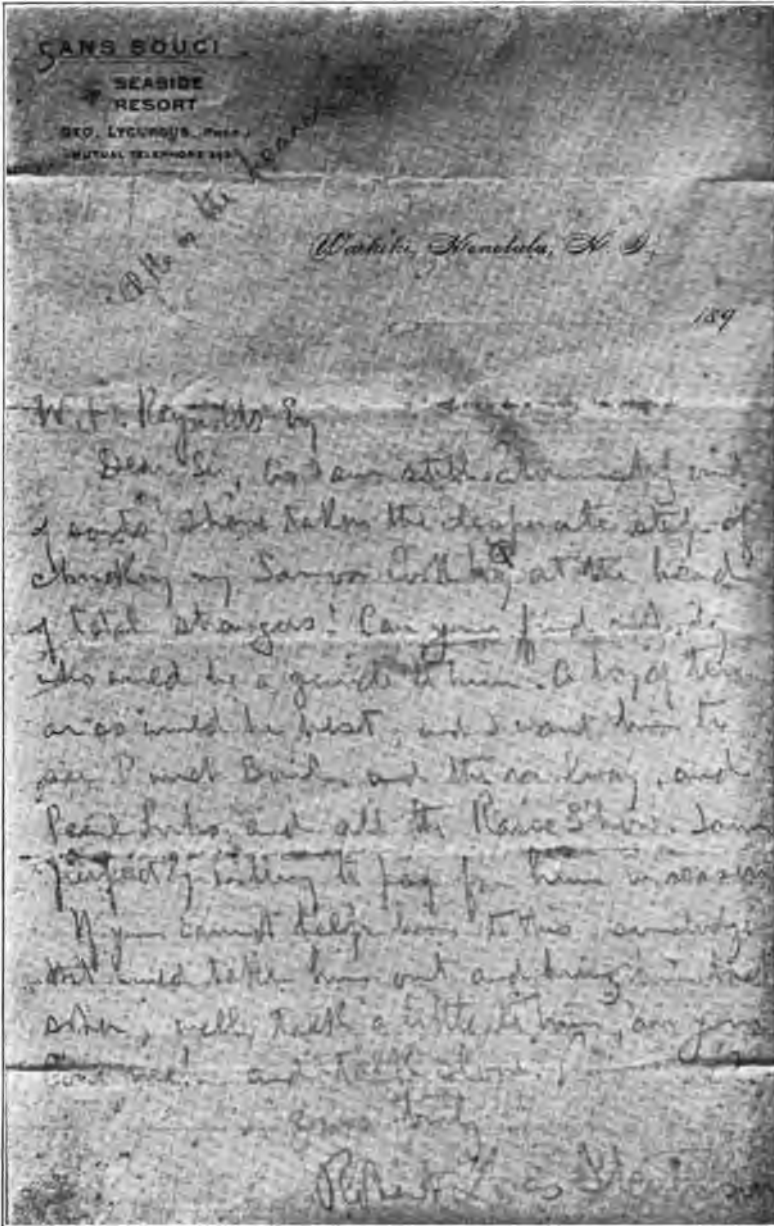 SANS SOUCI
SEASIDE
RESORT
GEO. LYCURGUS, PROP.
MUTUAL TELEPHONE
on the
Waikiki, Honolulu, H. I.,
189
W. F. Reynolds Esq
Dear Sir, As I am still abominably out
of sorts, I have taken the desperate step of
chucking my Samoa boy at the head
of total strangers! Can you find
who could be a guide to him. A boy of
or so would be best, and I want him to
see Punch Bowl, and the railway, and
Pearl Locks, and all the Raree Show. I am
perfectly willing to pay for him in reason
If you cannot help him to this, somebody
that could take him out and bring him back
sober, really talk a little to him,
and
Yours truly
Robert Louis Stevenson